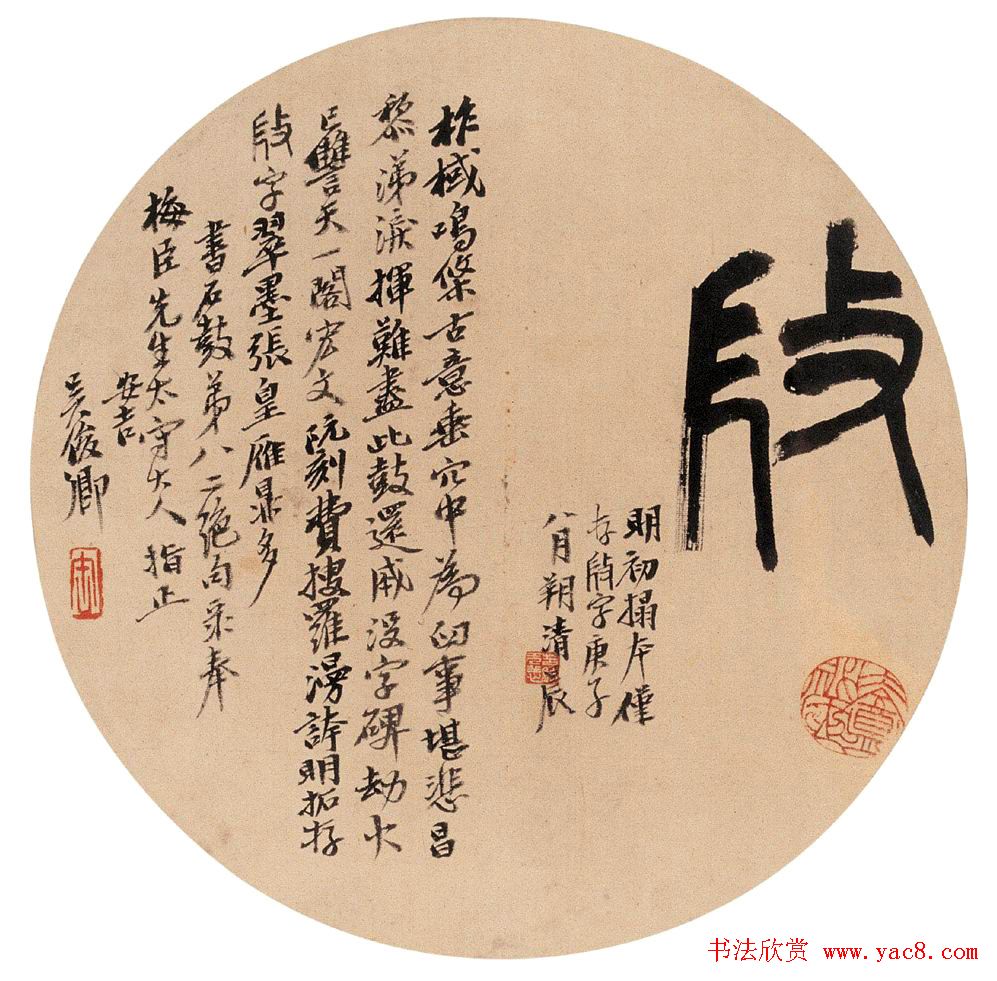 䣕
明初搨本僅
存䣕字庚子
八月朔清晨
柞棫鳴條古意垂穴中為臼事堪悲昌
黎涕淚揮難盡此鼓還成沒字碑劫火
已讐天一閣宏文阮刻費搜羅漫誇明拓存
字翠墨張皇雁鼎多
書石鼓第八二絕句录奉
梅臣先生太守大人 指正
安吉
吳俊卿
书法欣赏 www.yac8.com